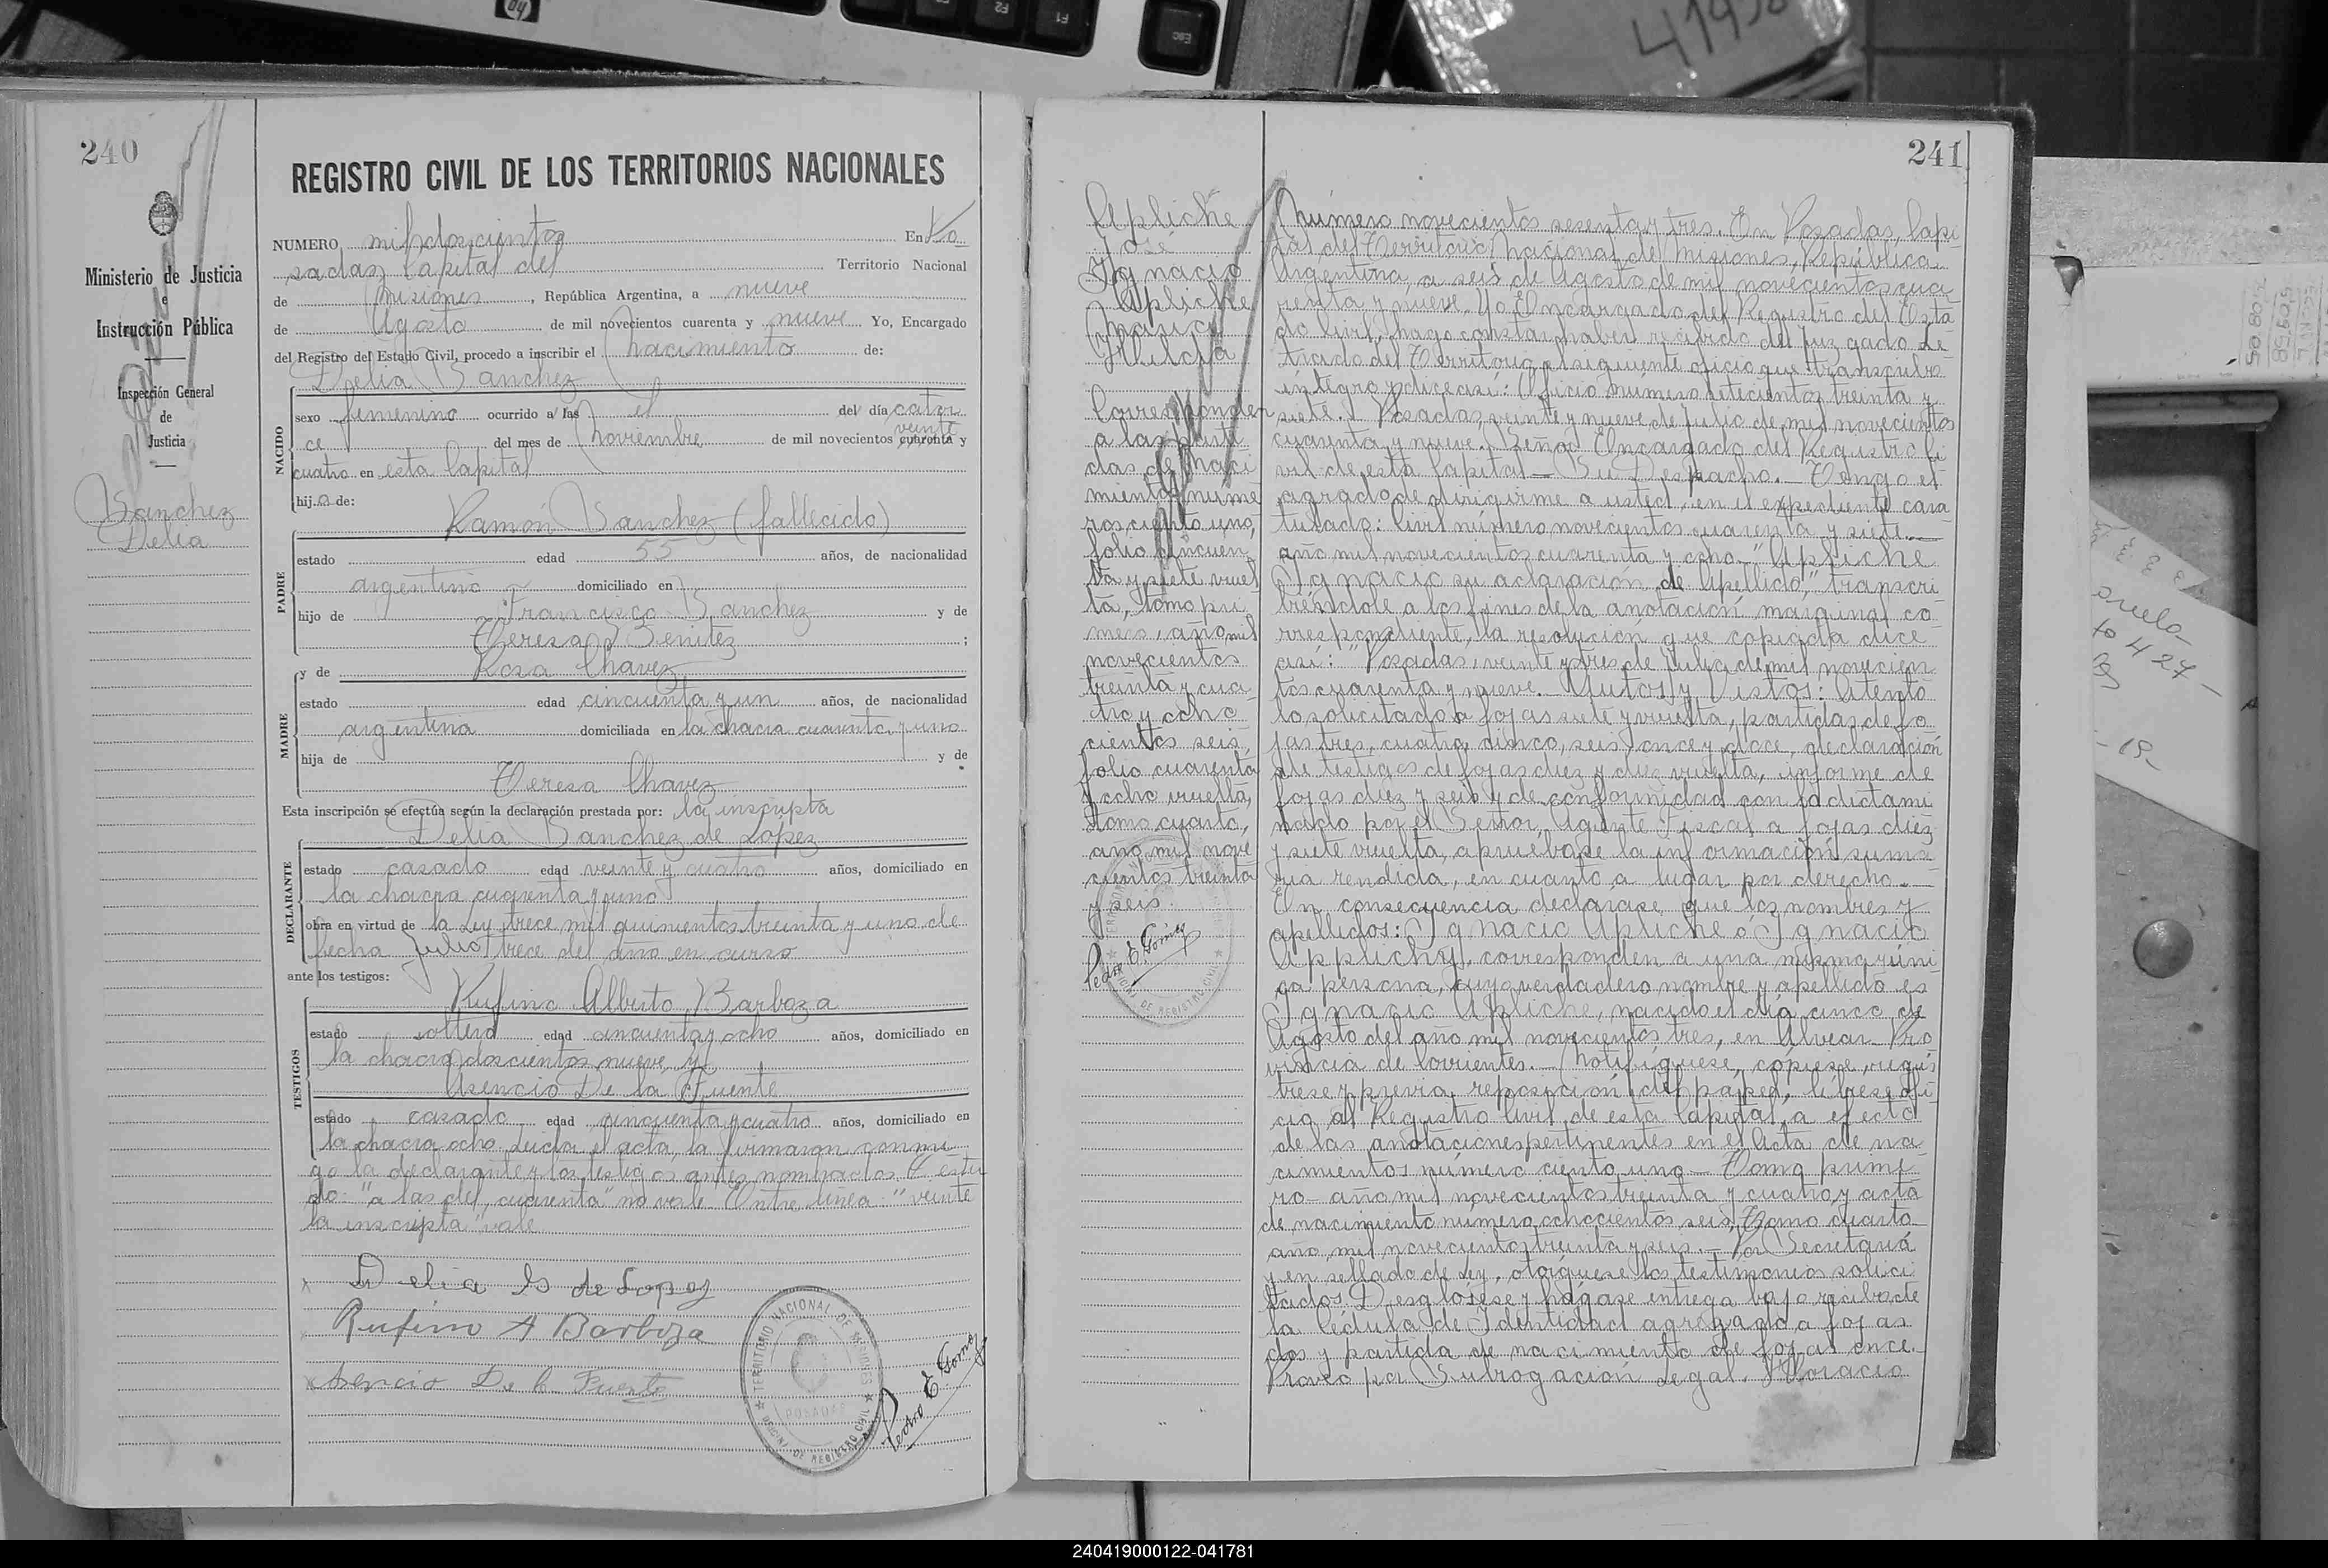 240
REGISTRO CIVIL DE LOS TERRITORIOS NACIONALES
Ministerio de Justicia
e
Instrucción Pública
Inspección General
de
Justicia
Sanchez
Delia
NUMERO mil doscientos En Po
sadas Capital del Territorio Nacional
de Misiones, República Argentina, a nueve
de Agosto de mil novecientos cuarenta y nueve Yo, Encargado
del Registro del Estado Civil, procedo a inscribir el Nacimiento de:
Delia Sanchez
NACIDO
sexo femenino ocurrido a las el del día cator
veinte
ce del mes de Noviembre de mil novecientos cuarenta y
cuatro en esta Capital
hija de:
Ramón Sanchez (fallecido)
PADRE
estado edad 55 años, de nacionalidad
argentino domiciliado en
hijo de Francisco Sanchez y de
Teresa Benitez ;
y de Rosa Chavez
MADRE
estado edad cincuenta y un años, de nacionalidad
argentina domiciliada en la chacra cuarenta y uno
hija de y de
Teresa Chavez
Esta inscripción se efectúa según la declaración prestada por: la inscripta
Delia Sanchez de López
DECLARANTE
estado casada edad veinte y cuatro años, domiciliado en
la chacra cuarenta y uno
obra en virtud de la Ley trece mil quinientos treinta y uno de
fecha Julio trece del año en curso
ante los testigos:
Rufino Alberto Barboza
TESTIGOS
estado soltero edad cincuenta y ocho años, domiciliado en
la chacra doscientos nueve, y
Asencio De la Fuente
estado casado edad cincuenta y cuatro años, domiciliado en
la chacra ocho. Leída el acta, la firmaron conmi
go la declarante y los testigos antes nombrados. Testa
do: "a las del, cuarenta" no vale. Entre línea: "veinte
la inscripta" vale
Delia S de Lopez
Rufino A Barboza
Asencio De la Fuente
TERRITORIO NACIONAL DE MISIONES
POSADAS
OFICINA DE REGISTRO CIVIL
Pedro E Gomez
241
Apliche
José
Ignacio
Apliche
María
Hilda
Corresponden
a las parti
das de naci
miento núme
ros ciento uno,
folio cincuen
ta y siete vuel
ta, tomo pri
mero, año mil
novecientos
treinta y cua
tro y ocho
cientos seis,
folio cuarenta
y ocho vuelta,
tomo cuarto,
año mil nove
cientos treinta
y seis.
Pedro E. Gomez
Número novecientos sesenta y tres. En Posadas, Capi
tal del Territorio Nacional de Misiones, República
Argentina, a seis de Agosto de mil novecientos cua
renta y nueve. Yo Encargado del Registro del Esta
do Civil, hago constar haber recibido del Juzgado Le
trado del Territorio el siguiente oficio que transcribo
íntegro y dice así: Oficio número setecientos treinta y
siete. Posadas, veinte y nueve de Julio de mil novecientos
cuarenta y nueve. Señor Encargado del Registro Ci
vil de esta Capital — Su Despacho. — Tengo el
agrado de dirigirme a usted, en el expediente cara
tulado: Civil número novecientos cuarenta y siete —
año mil novecientos cuarenta y ocho — "Apliche
Ignacio su aclaración de apellido," transcri
biéndole a los fines de la anotación marginal co
rrespondiente, la resolución que copiada dice
así: "Posadas, veinte y tres de Julio de mil novecien
tos cuarenta y nueve. Autos y Vistos: Atento
lo solicitado a fojas siete y vuelta, partidas de fo
jas tres, cuatro, cinco, seis, once y doce, declaración
de testigos de fojas diez y diez vuelta, informe de
fojas diez y seis y de conformidad con lo dictami
nado por el Señor Agente Fiscal a fojas diez
y siete vuelta, apruébase la información suma
ria rendida, en cuanto a lugar por derecho. —
En consecuencia declarase que los nombres y
apellidos: Ignacio Apliche o Ignacio
Applichy, corresponden a una misma y úni
ca persona, cuyo verdadero nombre y apellido es
Ignacio Apliche, nacido el día cinco de
Agosto del año mil novecientos tres, en Alvear Pro
vincia de Corrientes. — Notifíquese, cópiese, regís
trese y previa reposición del papel, líbrese ofi
cio al Registro Civil de esta Capital, a efecto
de las anotaciones pertinentes en el Acta de na
cimientos número ciento uno — Tomo prime
ro — año mil novecientos treinta y cuatro y acta
de nacimiento número ochocientos seis, Tomo cuarto
año mil novecientos treinta y seis. — Por Secretaría
y en sellado de Ley, otórguese los testimonios solici
tados. Desglósese y hágase entrega bajo recibo de
la Cédula de Identidad agregada a fojas
dos y partida de nacimiento de fojas once.
Proveo por Subrogación Legal. Horacio
240419000122-041781